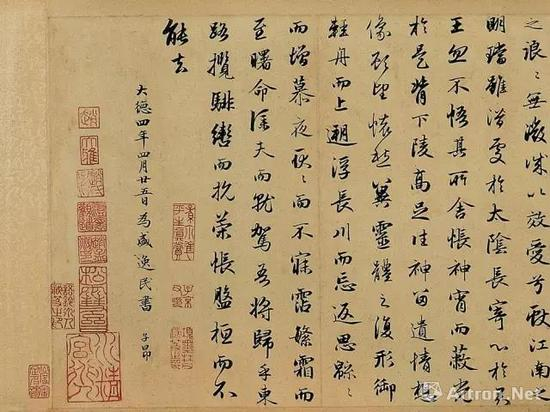 之浪〻無微情以效愛兮獻江南之
明璫雖潛處於太陰長寄心於君
王忽不悟其所舍悵神宵而蔽光
於是背下陵高足往神留遺情想
像顧望懷愁冀靈體之復形御
輕舟而上遡浮長川而忘返思緜〻
而增慕夜耿〻而不寐霑繁霜而
至曙命僕夫而就駕吾將歸乎東
路攬騑轡而抗策悵盤桓而不
能去
大德四年四月廿五日為盛逸民書 子昂
Artron.Net